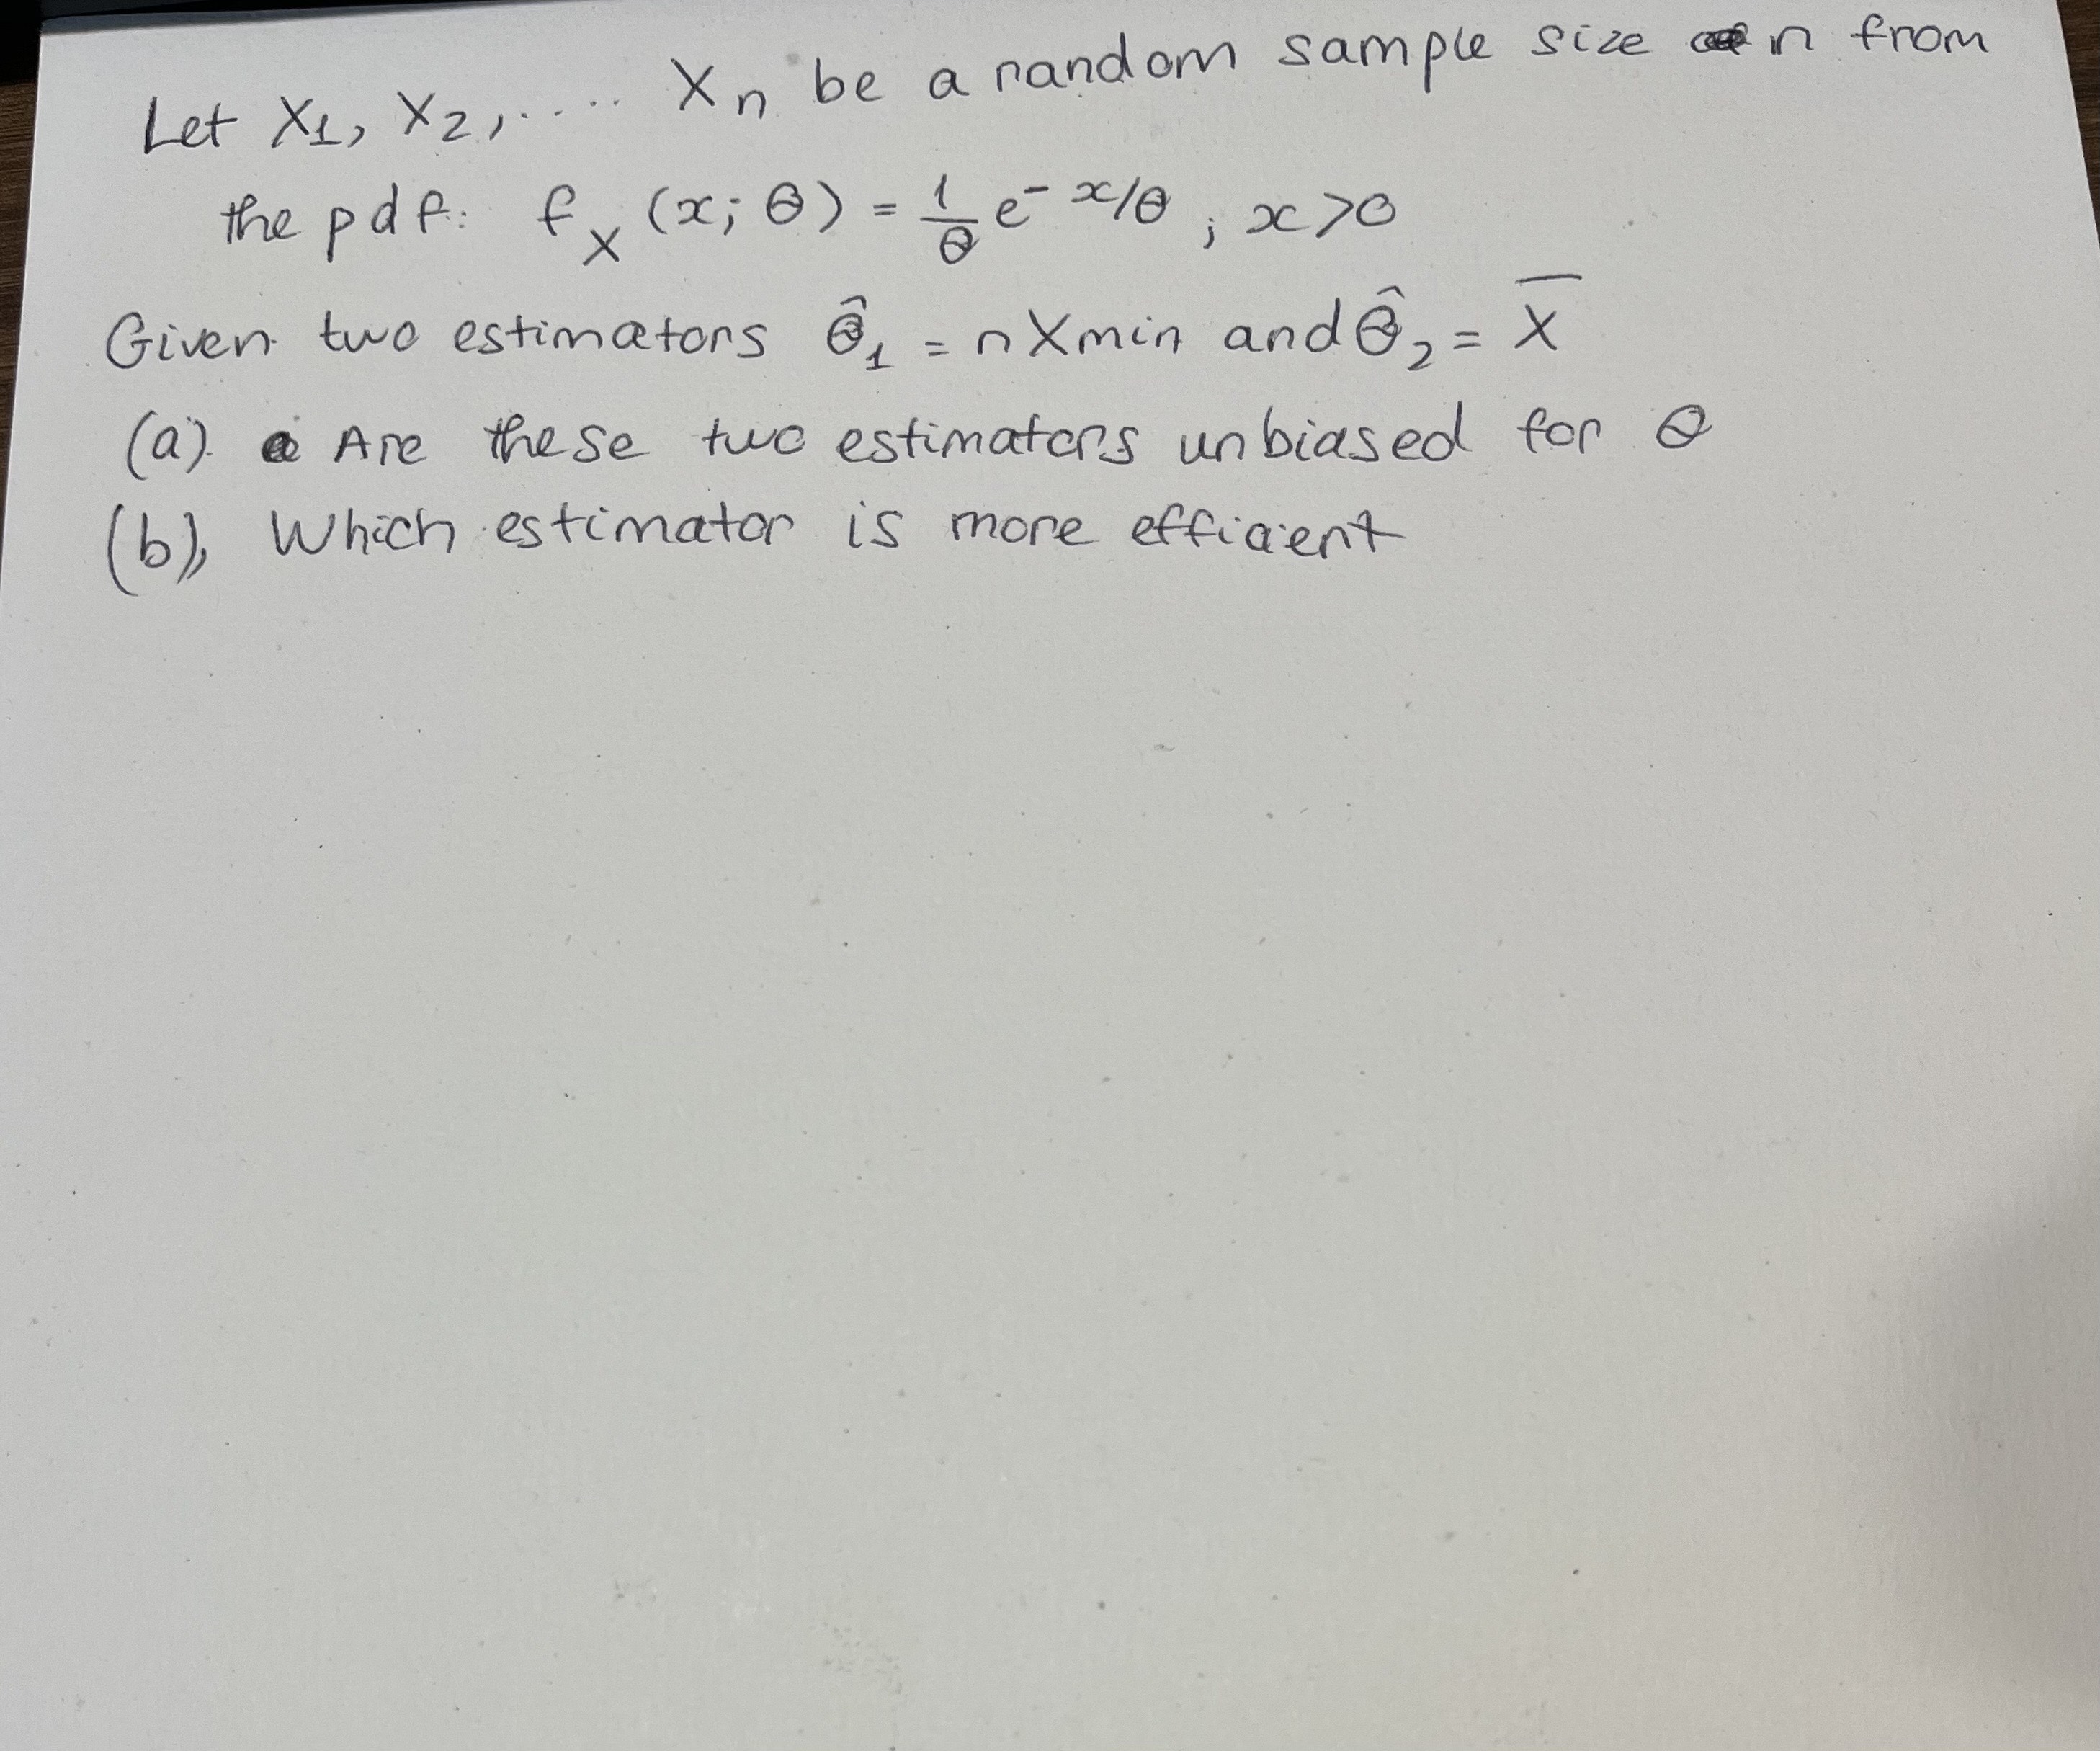 Let X1, X2, ..... Xn be a random sample size n from
the pdf: fX (x; θ) = 1/θ e^-x/θ ; x>0
Given two estimators θ̂1 = nXmin and θ̂2 = X̅
(a). Are these two estimators unbiased for θ
(b), Which estimator is more efficient